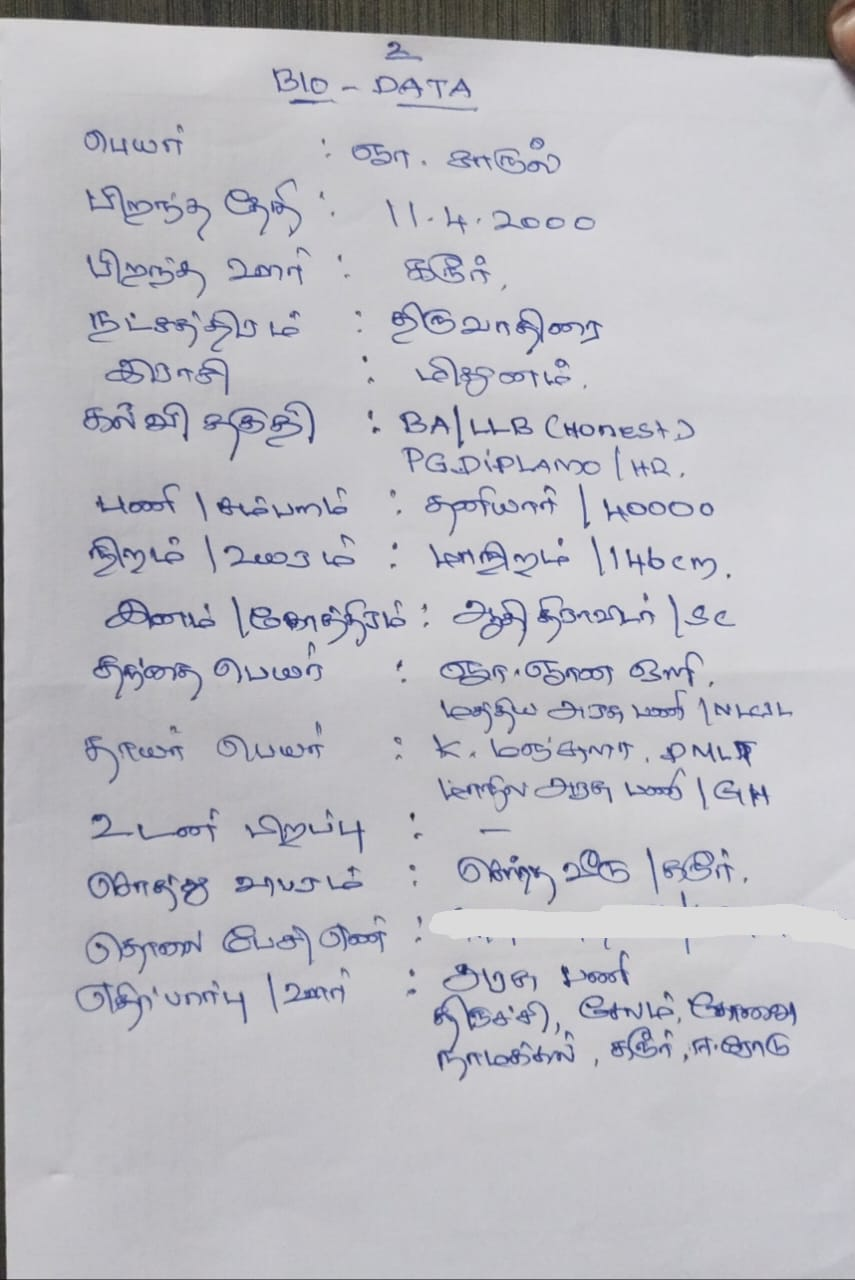 உ
BIO - DATA
பெயர் : ஞா. காருல்
பிறந்த தேதி : 11.4.2000
பிறந்த ஊர் : கரூர்,
நட்சத்திரம் : திருவாதிரை
இராசி : மிதுனம்.
கல்வி தகுதி : BA/LLB (Honest)
PG.DiPLAMO/HR.
பணி/சம்பளம் : தனியார்/40000
நிறம்/உயரம் : மாநிறம்/146cm.
இனம்/கோத்திரம் : ஆதி திராவிடர்/SC
தந்தை பெயர் : ஞா.ஞான ஒளி,
மத்திய அரசு பணி/NLCIL
தாயார் பெயர் : K. மஞ்சுளா, DMLT
மாநில அரசு பணி/GH
உடன் பிறப்பு : –
சொத்து விபரம் : சொந்த வீடு/கரூர்.
தொலை பேசி எண் :
எதிர்பார்பு/ஊர் : அரசு பணி
திருச்சி, சேலம், கோவை
நாமக்கல், கரூர், ஈரோடு